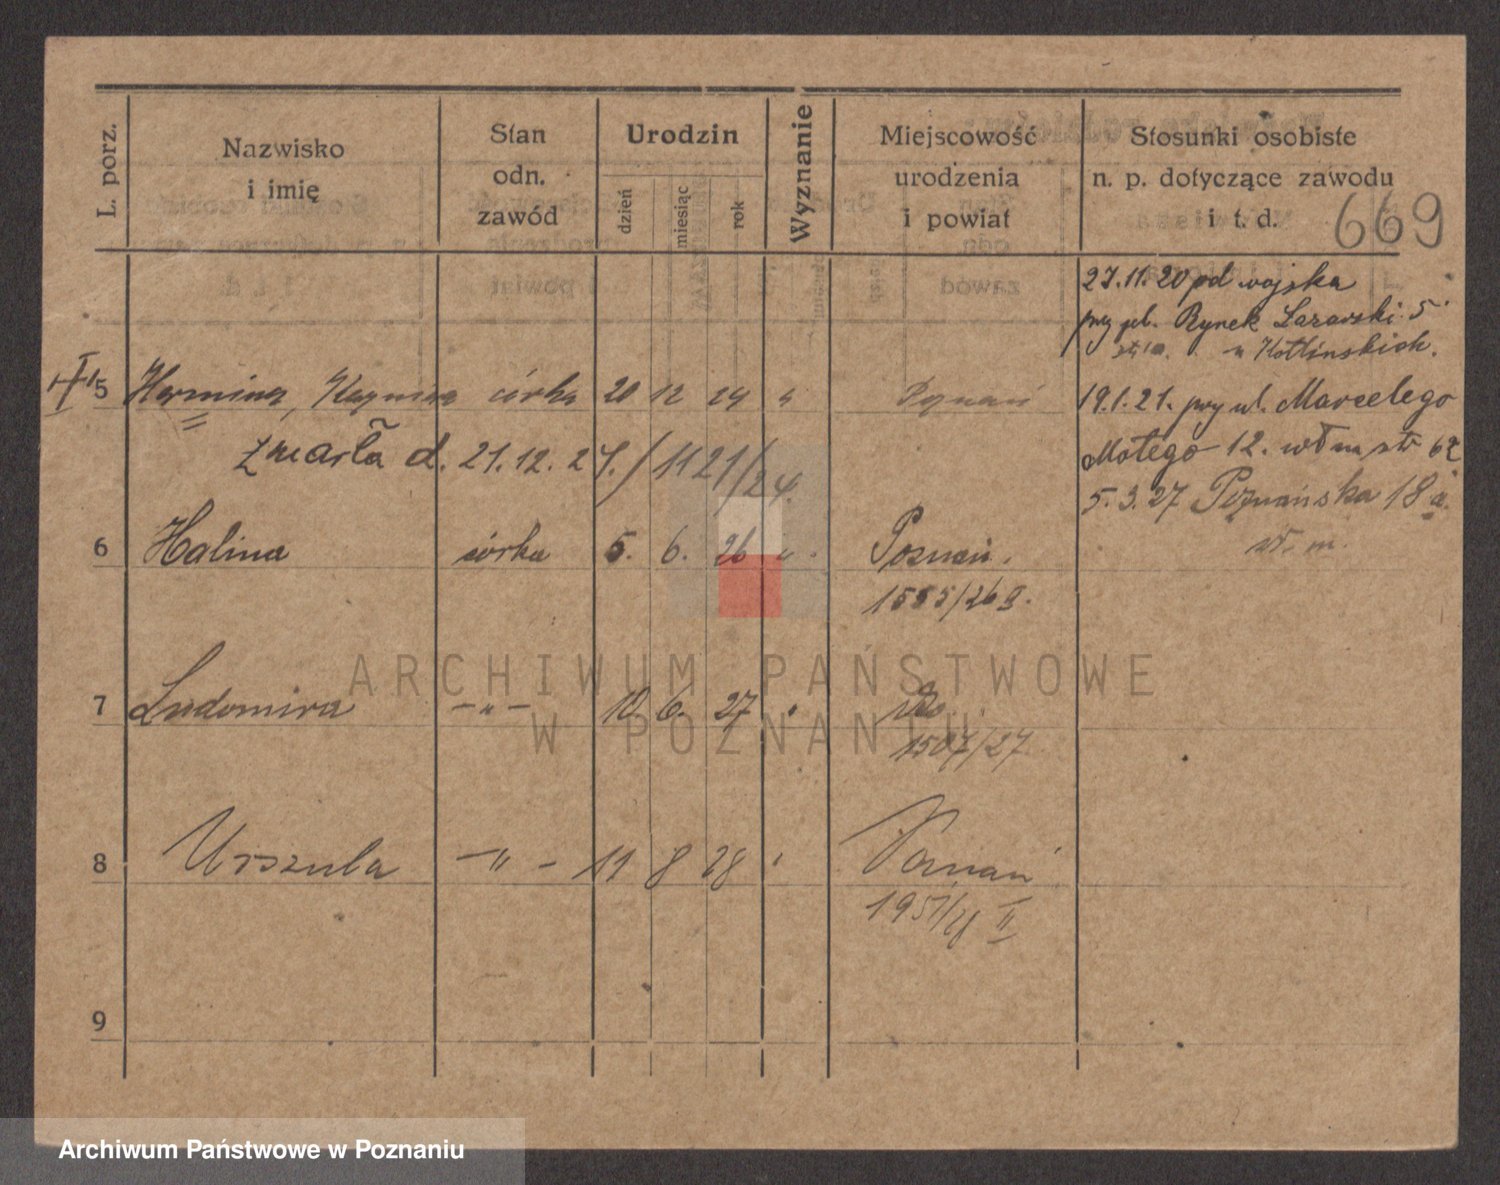 L. porz.
Nazwisko
i imię
Stan
odn.
zawód
Urodzin
dzień
miesiąc
rok
Wyznanie
Miejscowość
urodzenia
i powiat
Stosunki osobiste
n. p. dotyczące zawodu
i t. d.
669
27.11.20 pd wojska
przy pl. Rynek Łazarski 5
u Kotlińskich.
5 Hermina, córka 20 12 24 " Poznań
19.1.21. przy ul. Marcelego
zmarła d. 21.12.24. / 1121/24.
Motego 12.
5.3.27 Poznańska 18 a.
w. m.
6 Halina córka 5. 6. 26 " Poznań.
1555/26
7 Ludomira - " - 10 6. 27 "
1507/27
8 Urszula - " - 11 8 28 " Poznań
1951/28 II
9
ARCHIWUM PAŃSTWOWE
W POZNANIU
Archiwum Państwowe w Poznaniu